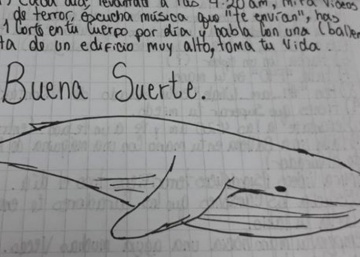 Cada día a las 4:20 am, mira videos
de terror, escucha música que "te envían", has
1 corte en tu cuerpo por día y habla con una (ballen
ta de un edificio muy alto, toma tu vida.
Buena Suerte.